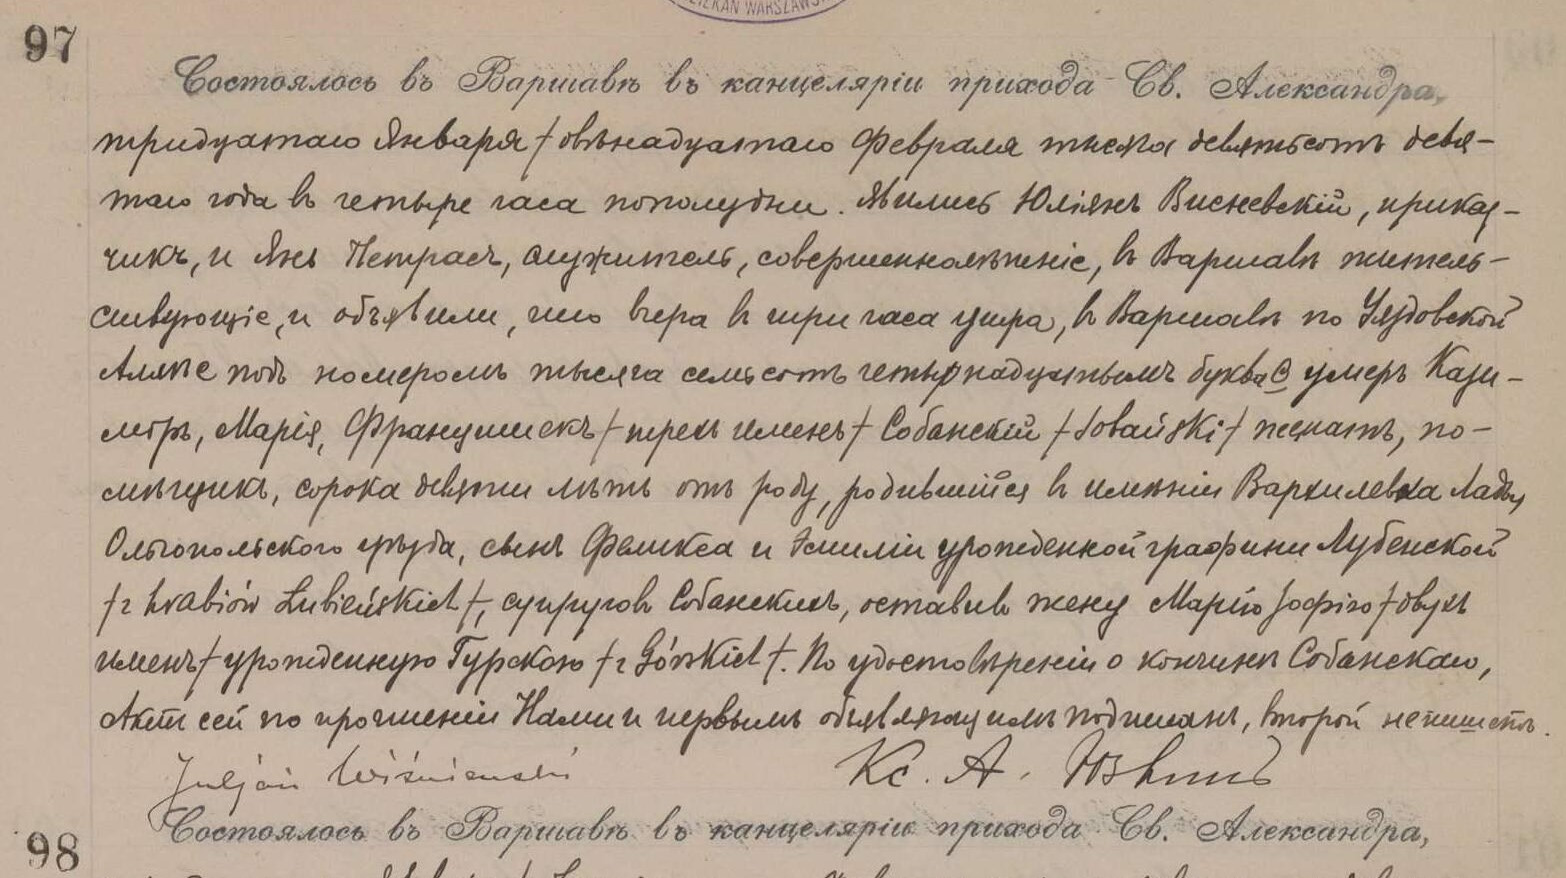 DZIEKAN WARSZAWSK
97
Состоялось въ Варшавѣ въ канцеляріи прихода Св. Александра,
тридцатаго Января / двѣнадцатаго Февраля тысяча девятьсотъ девя-
таго года въ четыре часа пополудни. Явились Юліянъ Висневскій, приказ-
чикъ, и Янъ Петрасъ, служитель, совершеннолѣтніе, въ Варшавѣ житель-
ствующіе, и объявили, что вчера въ три часа утра, въ Варшавѣ по Уяздовской
Аллеѣ подъ номеромъ тысяча семьсотъ четырнадцатымъ буква умеръ Кази-
міръ, Марія, Францишекъ / трехъ именъ / Собанскій / Sobański / женатъ, по-
мѣщикъ, сорока девяти лѣтъ отъ роду, родившійся въ имѣніи
Ольгопольскаго уѣзда, сынъ Феликса и Эмиліи урожденной графини Лубенской
/ z hrabiów Łubieńskich /, супруговъ Собанскихъ, оставивъ жену Марію Зофію / двухъ
именъ / урожденную Гурскою / z Górskich /. По удостовѣреніи о кончинѣ Собанскаго,
Актъ сей по прочтеніи Нами и первымъ объявляющимъ подписанъ, второй не пишетъ.
Juljan Wiśniewski Кс. А.
98
Состоялось въ Варшавѣ въ канцеляріи прихода Св. Александра,